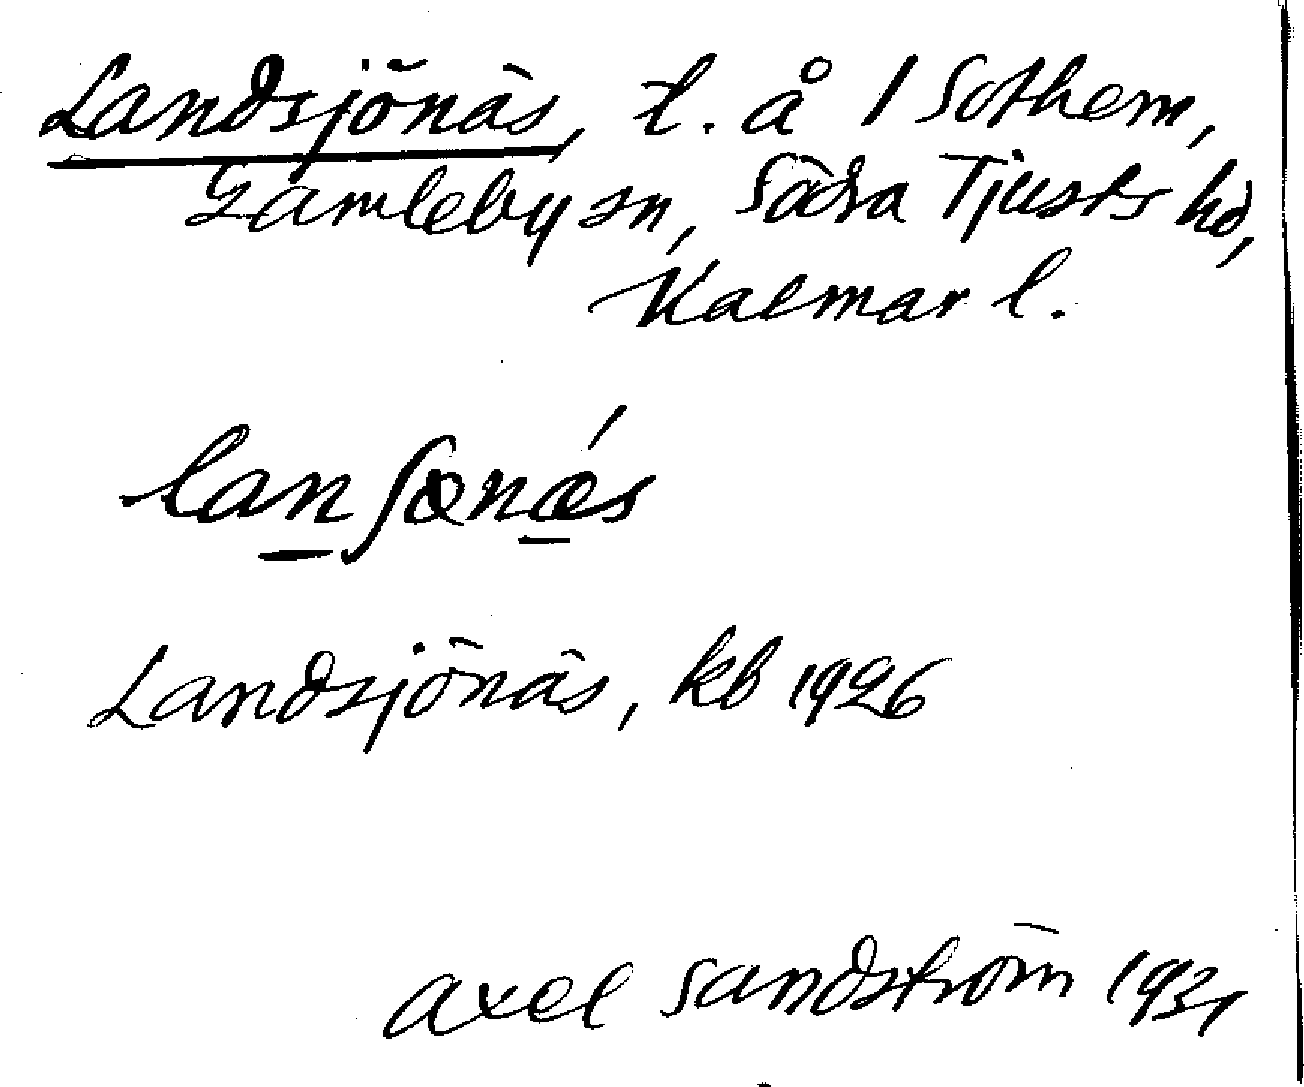 Landsjönäs, t. å 1 Sothem,
Gamleby sn, Södra Tjusts hd,
Kalmar l.
lanʃœnǽs
Landsjönäs, kb 1926
Axel Sandström 1931